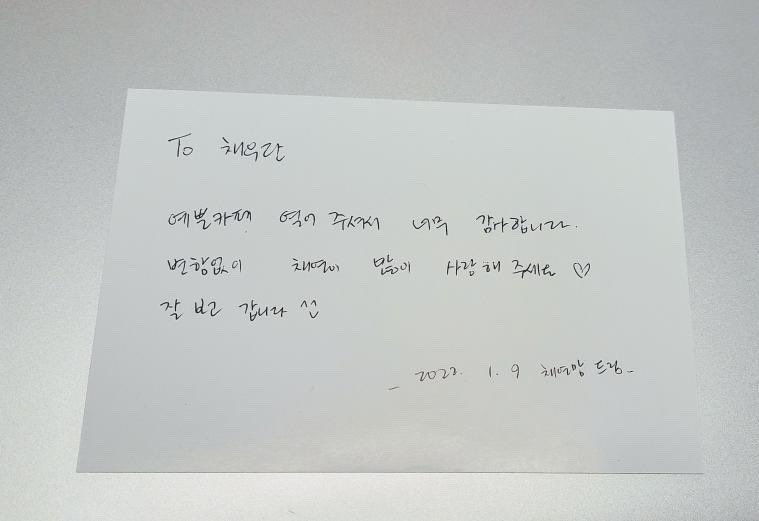 To 채우단
예쁜카페 열어 주셔서 너무 감사합니다.
변함없이 채연이 많이 사랑해 주세요 ♡
잘 보고 갑니다 ^^
- 2022. 1. 9 채연맘 드림-